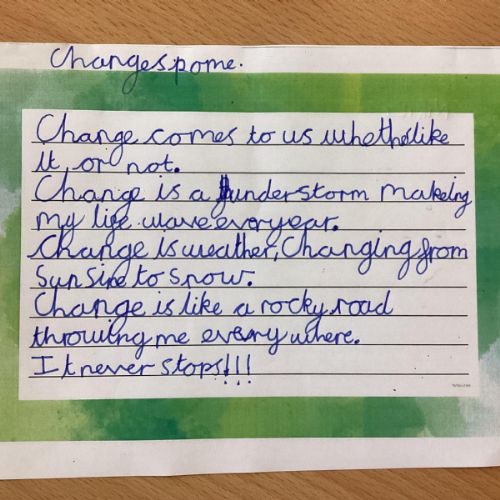 Changes pome.
Change comes to us whether like
it or not.
Change is a funderstorm makeing
my life wave every ear.
Change is weather, Changing from
Sun Sine to snow.
Change is like a rocky road
throwing me every where.
It never stops!!!